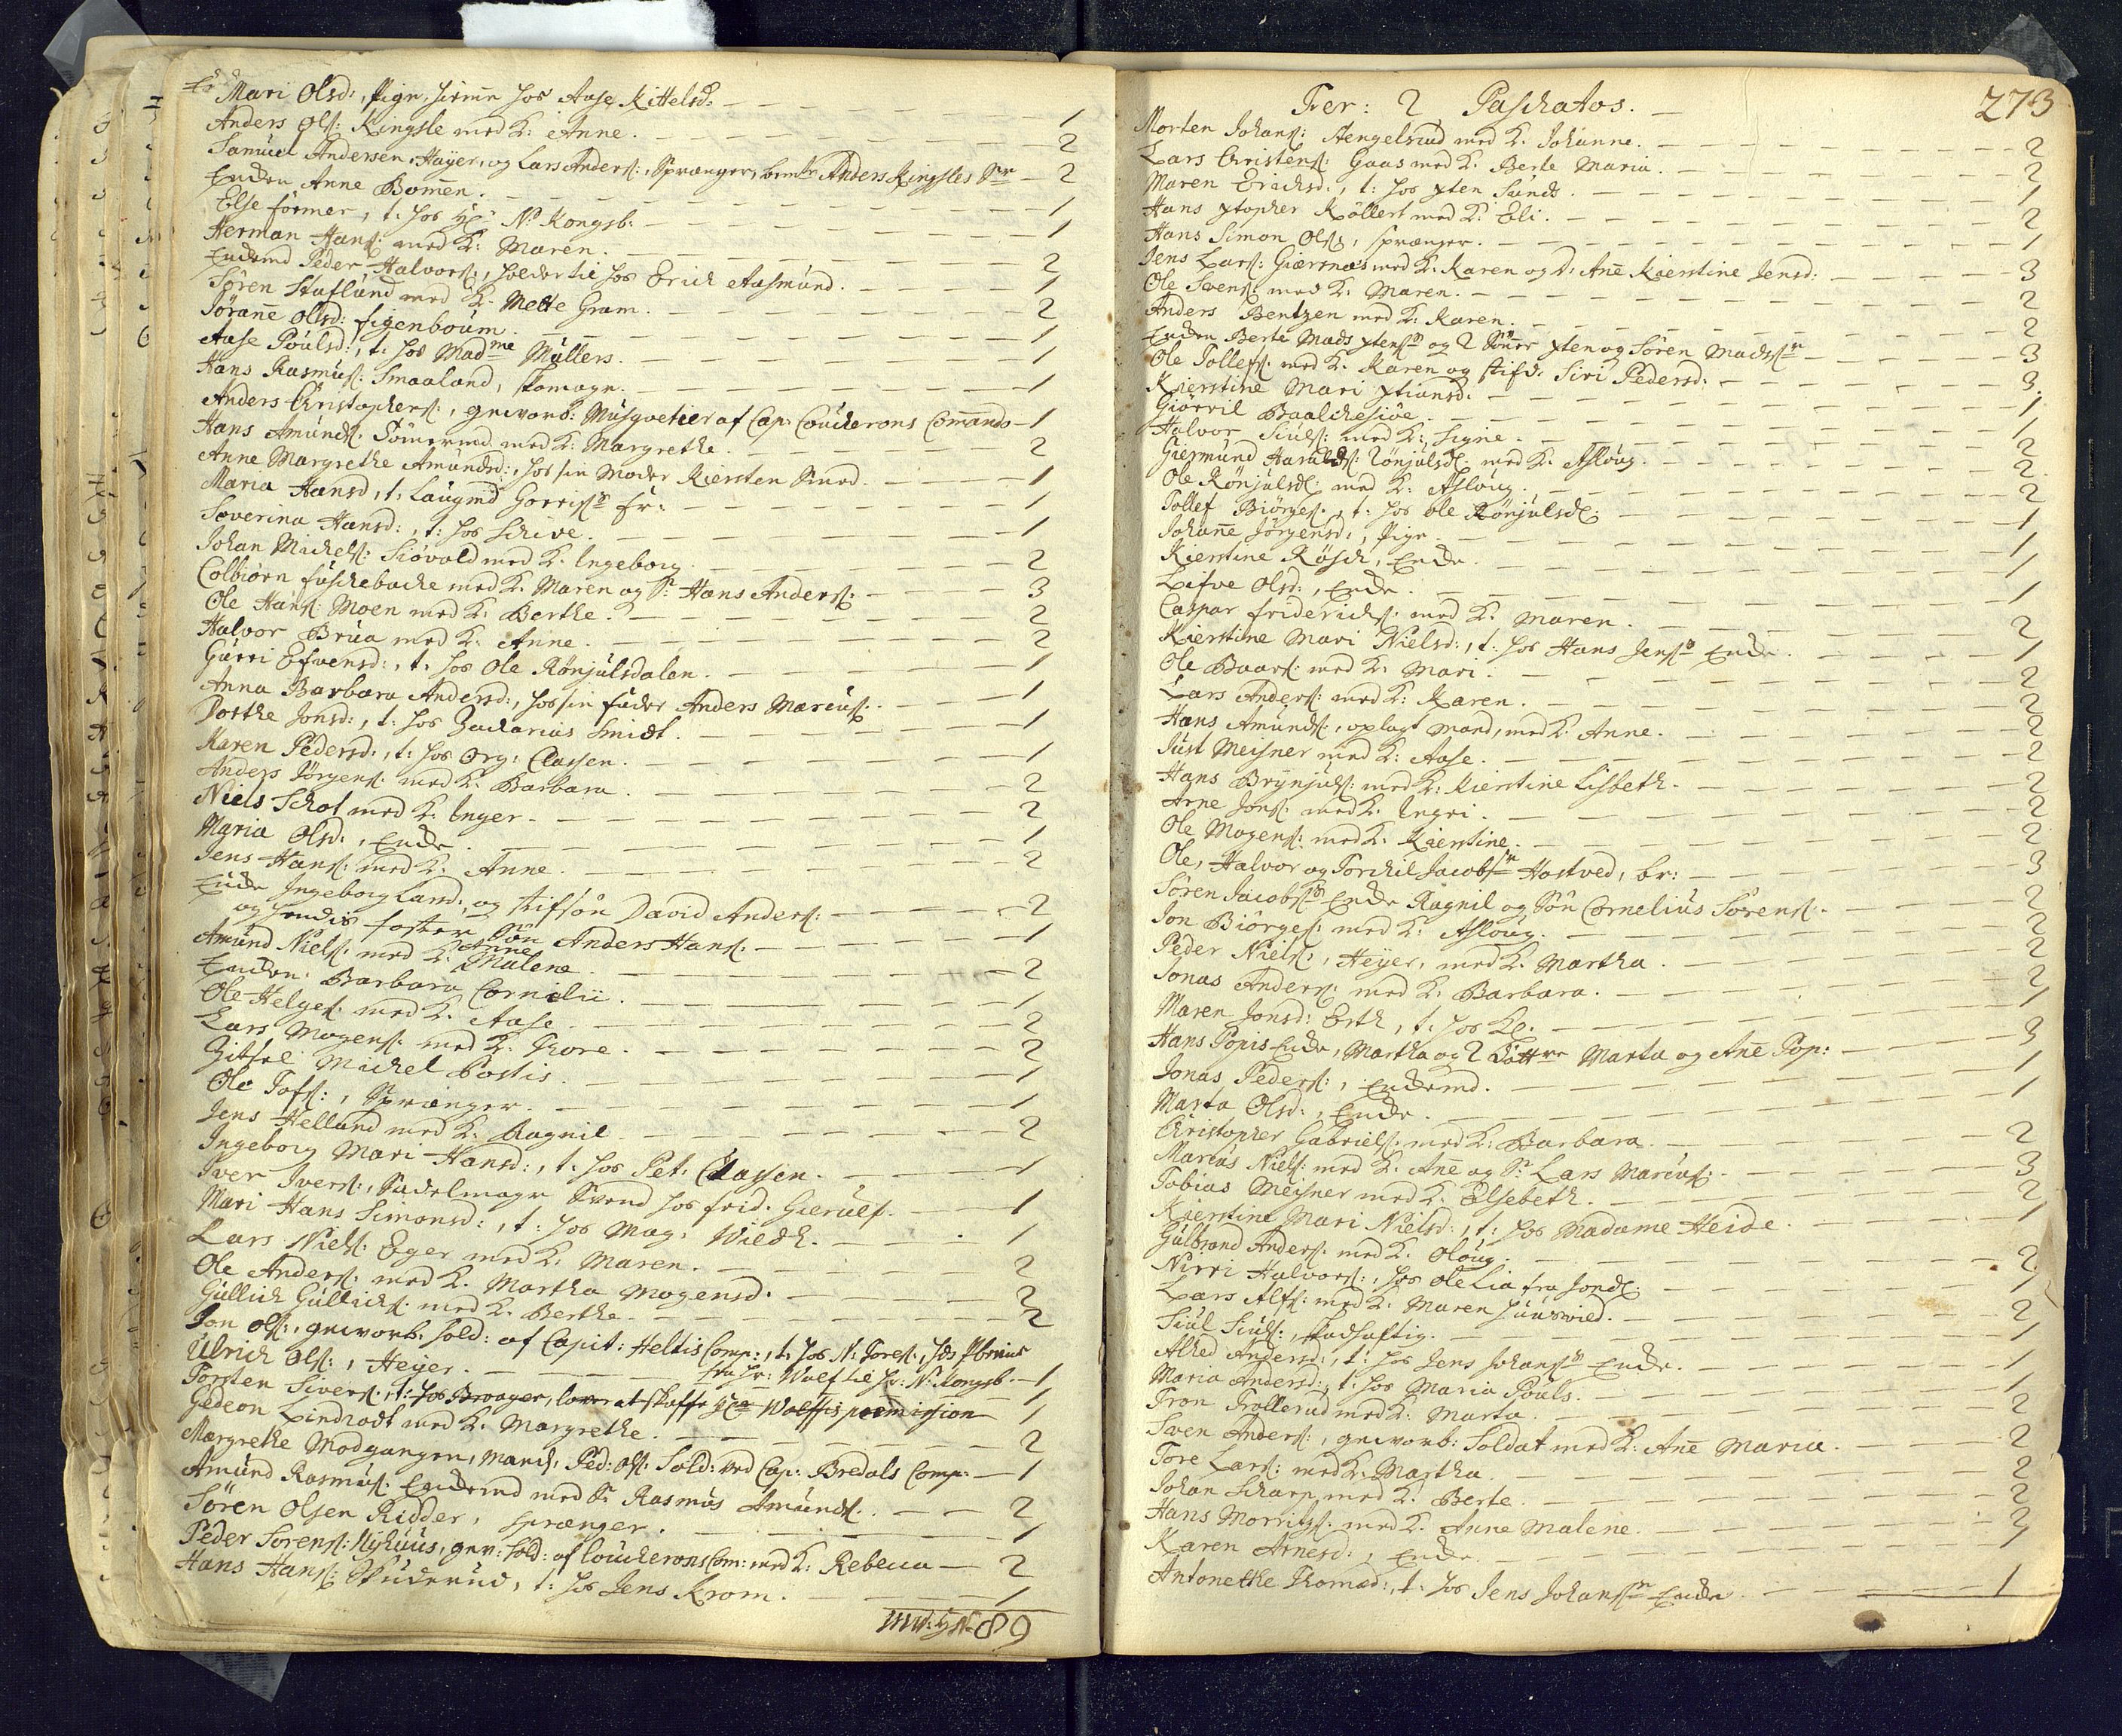 Mari Olsd:, Pige, hiemme hos Aase Kittelsd: — 1
Anders Ols: Kingsle med K: Anne. — 2
Samuel Andersen, Hayer, og Lars Anders:, Sprænger, Anders Kingsles — 2
Encken Anne Bomen. — 1
Else former, t: hos N: Kongsb: — 1
Herman Hans: med K: Maren. — 2
Enckemd Peder Halvors:, holder til hos Erich Aasmund. — 1
Søren Stafland med K: Mette Gram. — 2
Jørane Olsd: figenboum. — 1
Aase Poulsd:, t: hos Madme Müllers. — 1
Hans Rasmus: Smaaland, skomager. — 1
Anders Christophers:, gevorb: Musqvetier af Cap: Coucherons Comando — 1
Hans Amunds: Tømermd med K: Margrethe. — 2
Anne Margrethe Amundsd:, hos sin Moder Kiersten — 1
Maria Hansd, t: Laugmd Gorris: — 1
Severina Hansd:, t: hos Schive. — 1
Johan Michels: Siøvold med K: Ingeborg. — 2
Colbiørn fuschebache med K: Maren og S: Hans Anders: — 3
Ole Hans: Moen med K: Berthe. — 2
Halvor Brua med K: Anne. — 2
Gurri Efvensd:, t: hos Ole Rønjulsdalen. — 1
Anna Barbara Andersd:, hos sin fader Anders Marcus: — 1
Dorthe Jonsd:, t: hos Zacharias Smidt. — 1
Karen Pedersd:, t: hos Org: Classen. — 1
Anders Jørgens: med K: Barbara. — 2
Niels Schot med K: Inger. — 2
Maria Olsd:, Encke. — 1
Jens Hans: med K: Anne. — 2
Encke Ingeborg Land:, og stifsøn David Anders: — 2
og hendis foster Søn Anders Hans: — 1
Amund Niels: med K: Anne Malene. — 2
Encken Barbara Cornilii. — 1
Ole Helges: med K: Aase. — 2
Lars Mogens: med K: Thore. — 2
Michel Postis. — 1
Ole Tofs:, Sprænger. — 1
Jens Helland med K: Ragnil. — 2
Ingeborg Mari Hansd:, t: hos Pet: Classen. — 1
Iver Ivers:, Sadelmager Svend hos frid. Gierulf. — 1
Mari Hans Simonsd:, t: hos Mag: Wildh. — 1
Lars Niels: Eger med K: Maren. — 2
Ole Anders: med K: Martha Mogensd. — 2
Gullich Gullichs: med K: Berthe. — 2
Jon Ols:, gevorb. Sold: af Capit: Heltis Comp:, t: hos N: Tores:,
Ulrich Ols:, Heyer. — fra Hr: Wulf til Hr: N: Kongsb. — 1
Torsten Sivers:, t: hos Broager, lover at skaffe Wulffis permission 1
Gedeon Lindrodt med K: Margrethe. — 2
Margrethe Modgangen, Mands: Ped: Ols: Sold: ved Cap: Bredals Comp: — 1
Amund Rasmus: Enckemd med S: Rasmus Amunds: — 2
Søren Olsen Ridder, sprænger. — 1
Peder Sorens: Nyhuus, gev: Sold: af Coucherons Com: med K: Rebecca — 2
Hans Hans: Skuderud, t: hos Jens Krom. — 1
89
Fer: 2 Paschatos. 273
Morten Johans: Hengelsrud med K: Johanne. — 2
Lars Christens: Gaas med K: Berte Maria. — 2
Maren Erichsd:, t: hos xten Sunds. — 1
Hans xtopher Køllert med K: Eli. — 2
Hans Simon Ols:, sprænger. — 1
Jens Lars: Giæsnæs med K: Karen og D: Ane Kierstine Jensd: — 3
Ole Svens: med K: Maren. — 2
Anders Bentzen med K: Karen. — 2
Encken Berte Mads xtens: og 2 Sønner xten og Søren Mads: — 3
Ole Tollefs: med K: Karen og stifd: Siri Pedersd: — 3
Kierstine Mari xtiansd. — 1
Giørvil Baalchesiøe. — 1
Halvor Siuls: med K: Signe. — 2
Giermund Haralds: Rønjulsd: med K: Asloug. — 2
Ole Rønjulsd: med K: Asloug. — 2
Tollef Biørges:, t: hos Ole Rønjulsd: — 1
Johane Jørgensd:, Pige. — 1
Kierstine Røsch, Encke. — 1
Lifve Olsd:, Encke. — 1
Caspar friderichs: med K: Maren. — 2
Kierstine Mari Nielsd:, t: hos Hans Jens: Encke. — 1
Ole Baars: med K: Mari. — 2
Lars Anders: med K: Karen. — 2
Hans Amunds:, oplagt mand, med K: Anne. — 2
Just Meisner med K: Aase. — 2
Hans Brynjuls: med K: Kierstine Lisbeth. — 2
Arne Jons: med K: Ingri. — 2
Ole Mogens: med K: Kierstine. — 2
Ole, Halvor og Torchil Jacobs: Hostved, br: — 3
Søren Jacobs: Encke Ragnil og Søn Cornelius Sørens: — 2
Jon Biørges: med K: Aslaug. — 2
Peder Niels:, Heyer, med K: Martha. — 2
Jonas Anders: med K: Barbara. — 2
Maren Jonsd: Esth, t: hos — 1
Hans Popis Encke, Martha og 2 Døttre Marta og Ane Pop: — 3
Jonas Peders:, Enckemd. — 1
Marta Olsd:, Encke. — 1
Christopher Gabriels: med K: Barbara. — 2
Marcus Niels: med K: Ane og S: Lars Marcus: — 3
Tobias Meisner med K: Elsebeth. — 2
Kierstine Mari Nielsd:, t: hos Madame Heide. — 1
Gulbrand Anders: med K: Oloug. — 2
Nirri Halvors:, hos Ole Lia fra Jonds: — 1
Lars Alfs: med K: Maren Huuswild. — 2
Siul Siuls:, stadhaftig. — 1
Alhed Andersd:, t: hos Jens Johans: Encke. — 1
Maria Andersd:, t: hos Maria Pouls. — 1
Tron Trollerud med K: Marta. — 2
Sven Anders:, gevorb: Soldat med K: Ane Maria. — 2
Tore Lars: med K: Martha. — 2
Johan Scharp med K: Berte. — 2
Hans Morrits: med K: Anne Malene. — 2
Karen Arnesd:, Encke. — 1
Antonethe Thomæd:, t: hos Jens Johans: Encke — 1